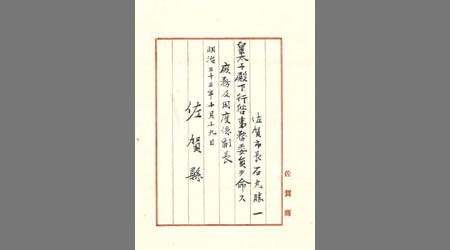 佐賀市長石丸勝一
皇太子殿下行啓事務委員ヲ命ス
庶務及用度係副長
明治三十三年十月十九日
佐賀縣
佐賀縣